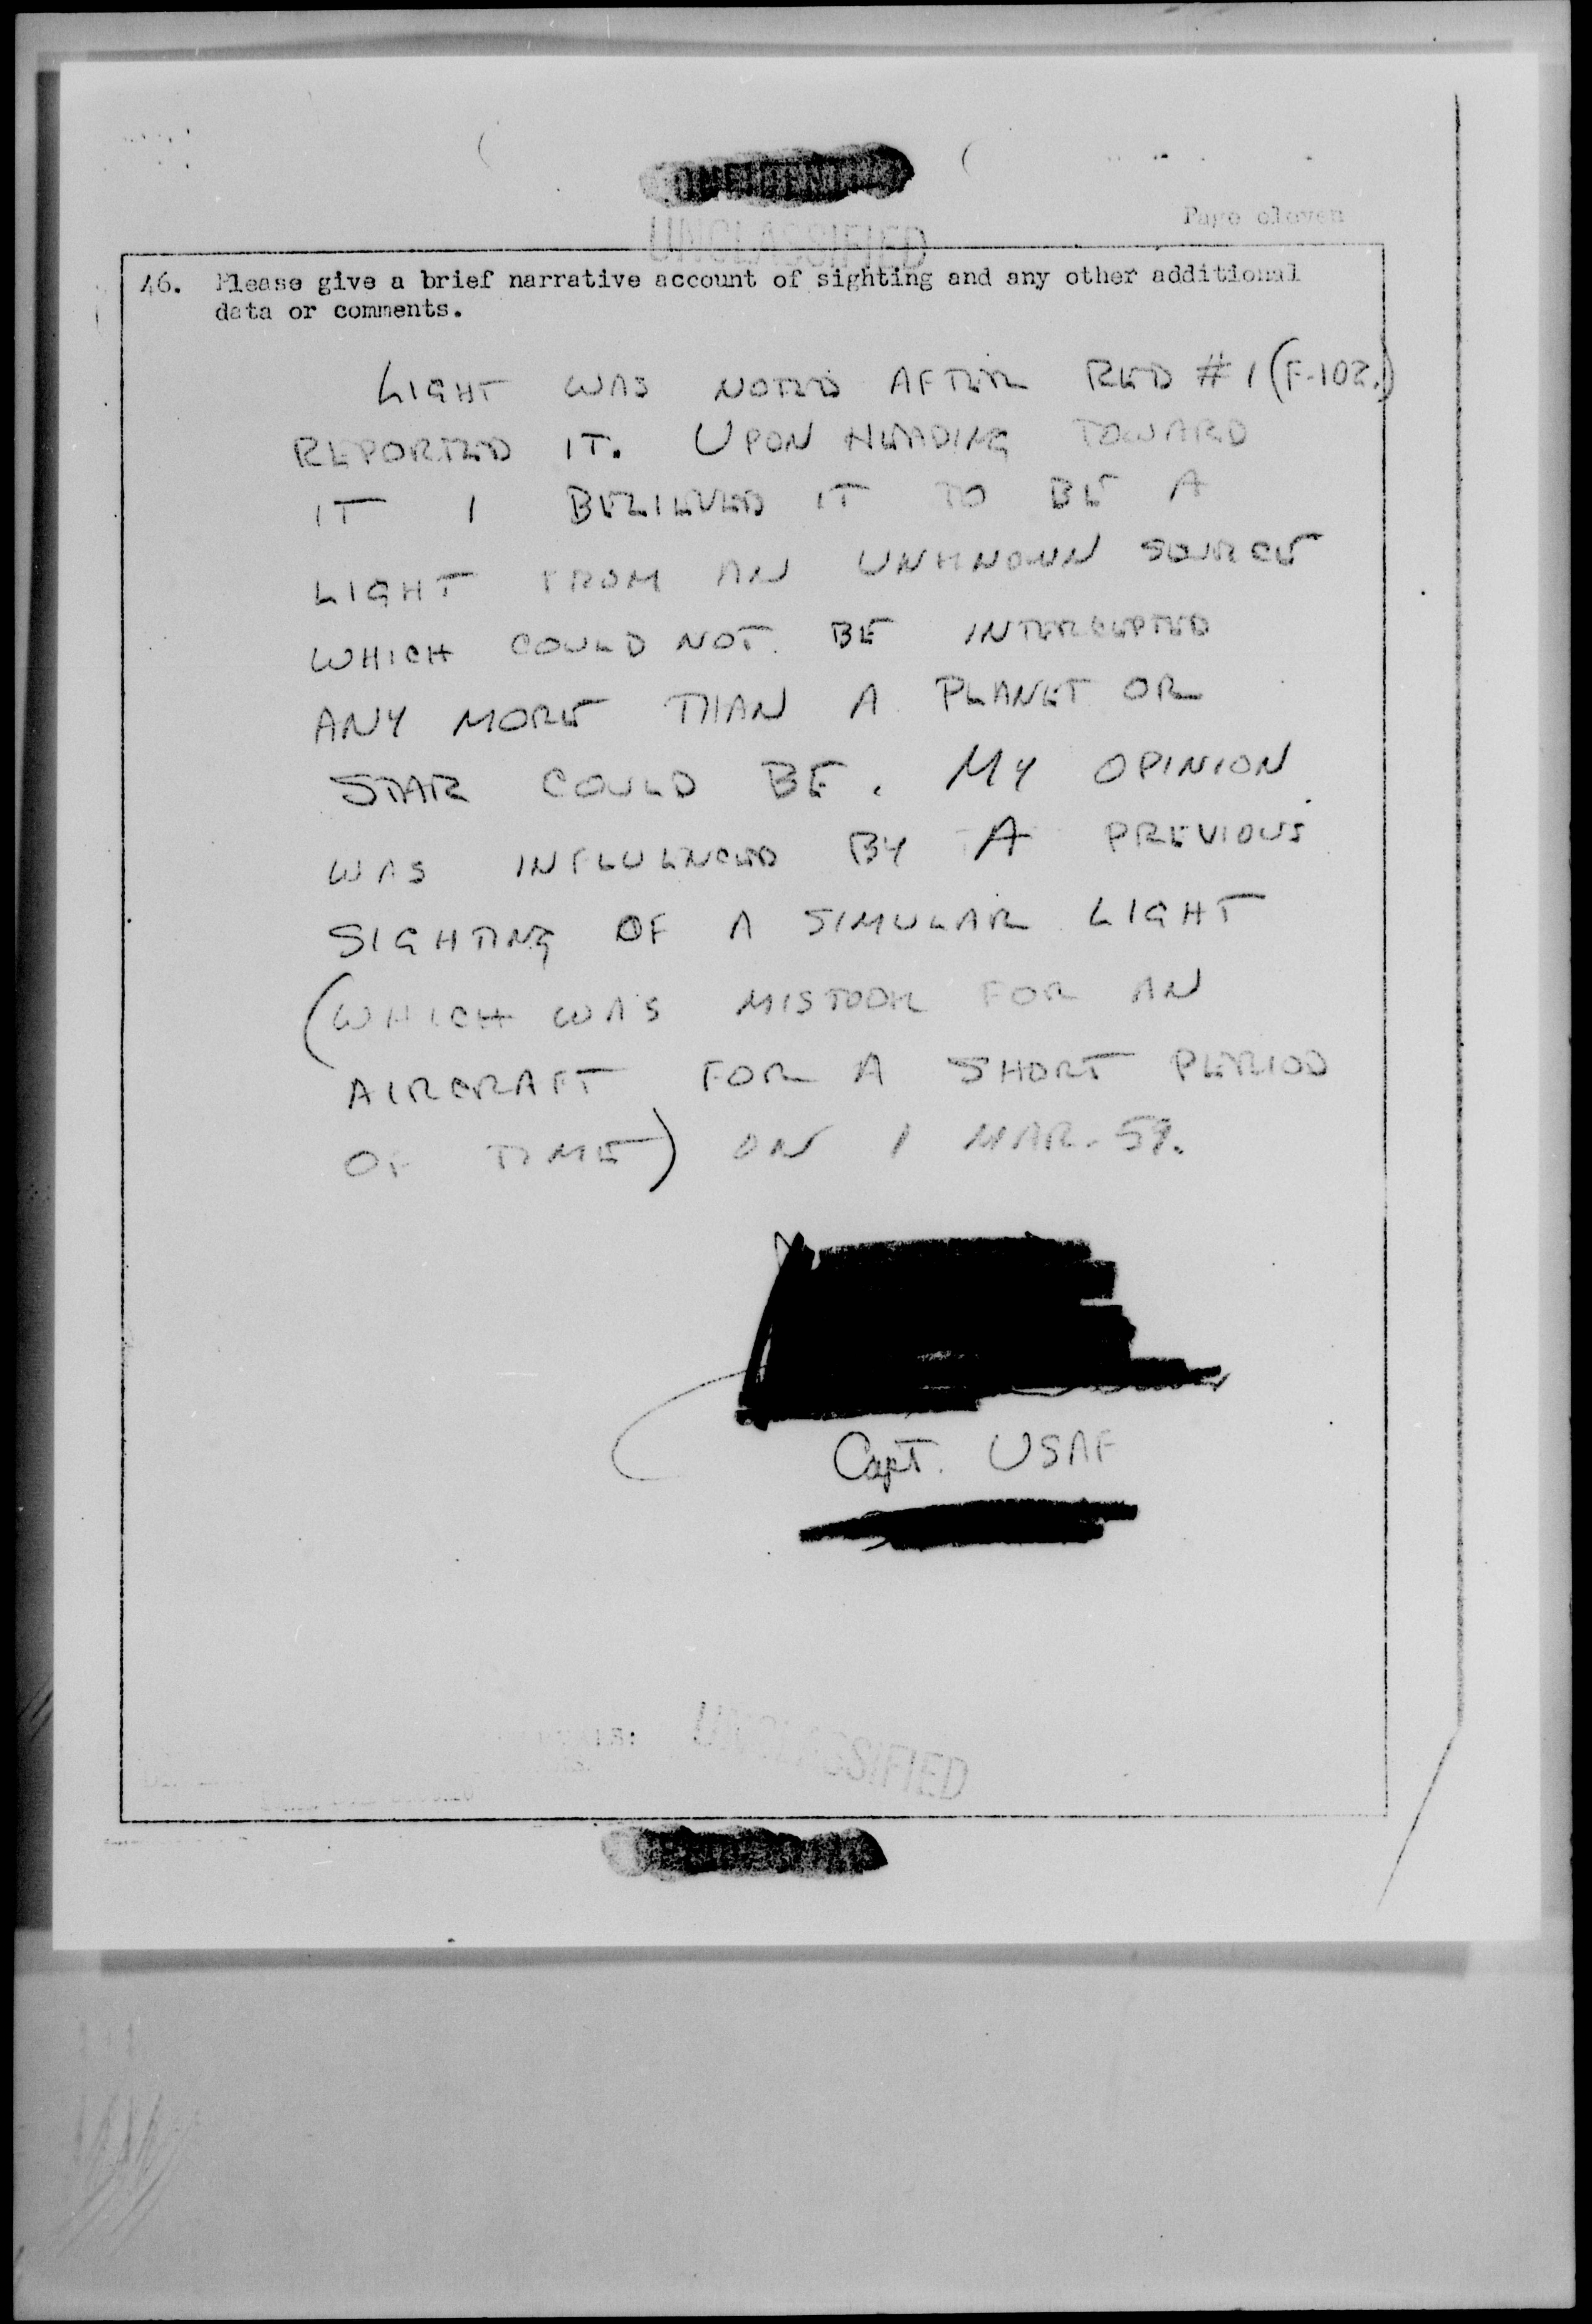 UNCLASSIFIED
Page eleven
46. Please give a brief narrative account of sighting and any other additional
data or comments.
LIGHT WAS NOTED AFTER RED #1 (F-102.)
REPORTED IT. UPON HEADING TOWARD
IT I BELIEVED IT TO BE A
LIGHT FROM AN UNKNOWN SOURCE
WHICH COULD NOT BE INTERCEPTED
ANY MORE THAN A PLANET OR
STAR COULD BE. MY OPINION
WAS INFLUENCED BY A PREVIOUS
SIGHTING OF A SIMULAR LIGHT
(WHICH WAS MISTOOK FOR AN
AIRCRAFT FOR A SHORT PERIOD
OF TIME) ON 1 MAR. 59.
Capt. USAF
UNCLASSIFIED